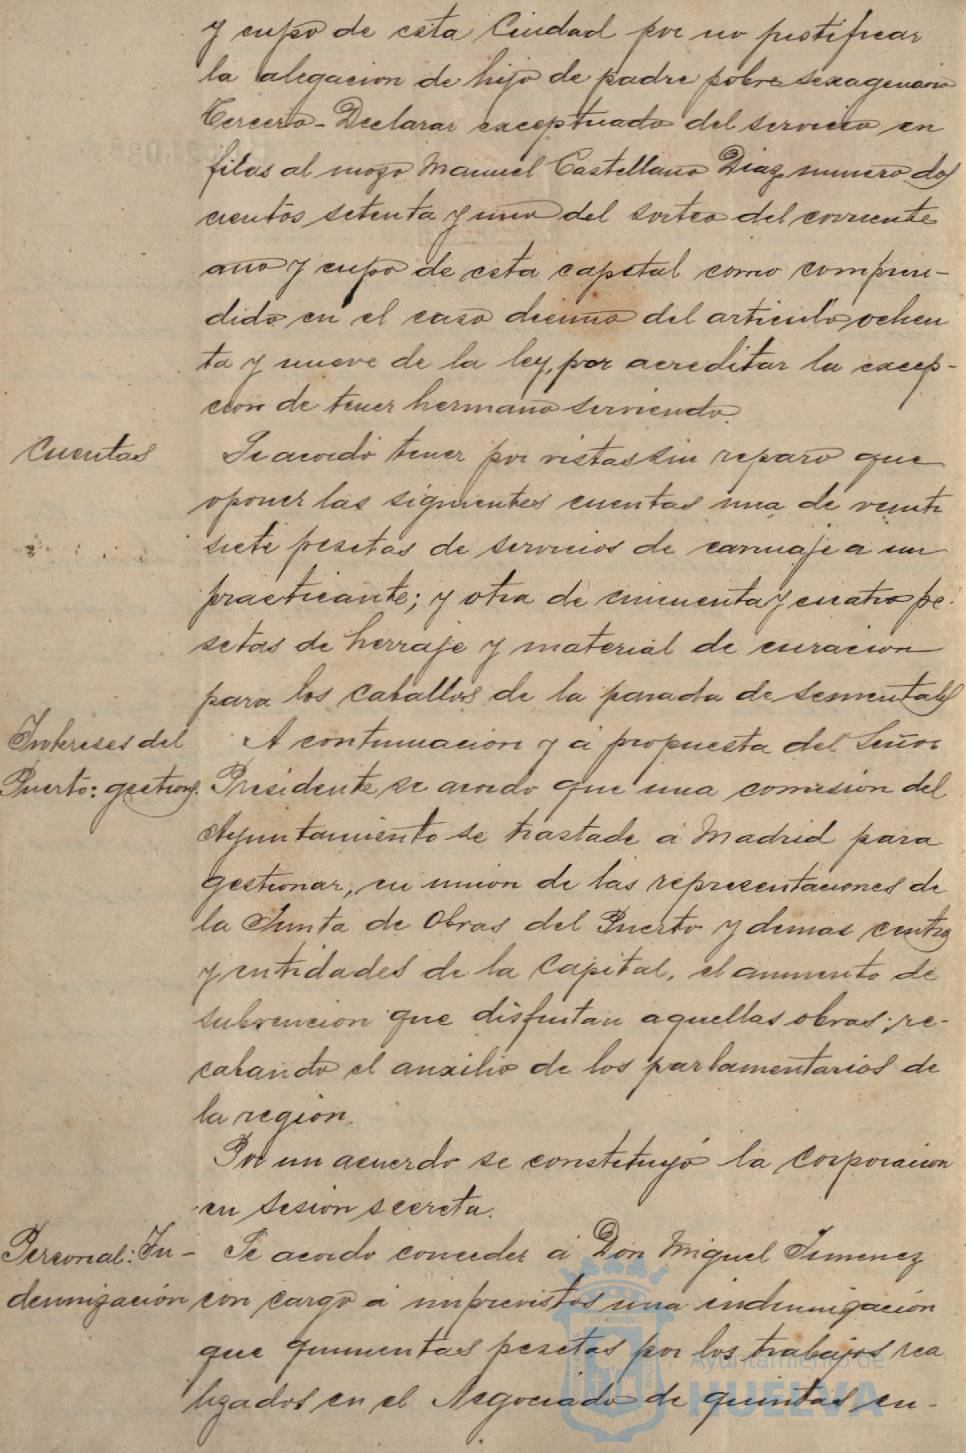 y cupo de esta Ciudad por no justificar
la alegacion de hijo de padre pobre sexagenario
Tercero - Declarar exceptuado del servicio en
filas al mozo Manuel Castellano Diaz numero dos
cientos setenta y uno del sorteo del corriente
año y cupo de esta capital como compren-
dido en el caso decimo del articulo ochen
ta y nueve de la ley, por acreditar la excep-
cion de tener hermano sirviendo.
Cuentas
Se acordó tener por vistas sin reparo que
oponer las siguientes cuentas una de veinti
siete pesetas de servicios de carruaje a un
practicante; y otra de cincuenta y cuatro pe-
setas de herraje y material de curacion
para los caballos de la parada de sementales
Intereses del
Puerto: gestions.
A continuacion y á propuesta del Señor
Presidente se acordo que una comision del
Ayuntamiento se traslade á Madrid para
gestionar, en union de las representaciones de
la Junta de Obras del Puerto y demas centros
y entidades de la Capital, el aumento de
subvencion que disfrutan aquellas obras; re-
cabando el auxilio de los parlamentarios de
la región.
Por un acuerdo se constituyó la Corporacion
en sesión secreta.
Personal: In-
demnización
Se acordo conceder á Don Miguel Jimenez
con cargo á imprevistos una indemnización
que quinientas pesetas por los trabajos rea
lizados en el Negociado de quintas en-
Ayuntamiento de
HUELVA